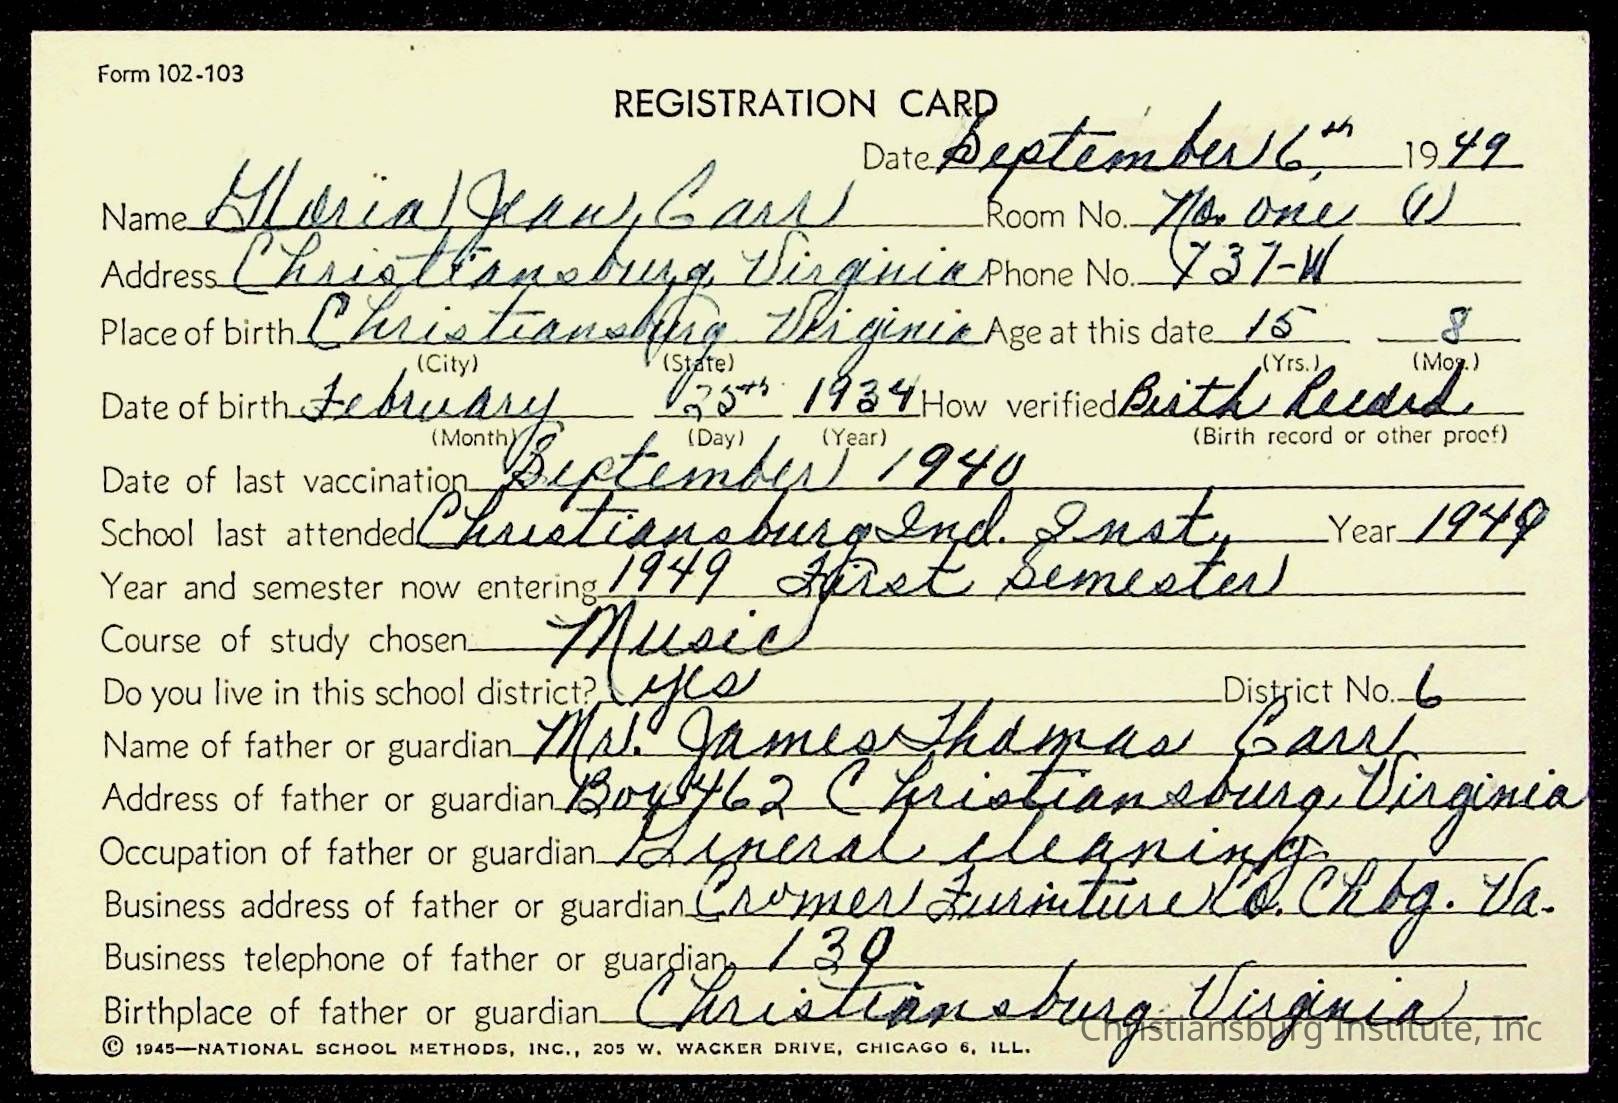 Form 102-103
REGISTRATION CARD
Date September 16th, 1949
Name Gloria Jean Carr Room No. No. one (1)
Address Christiansburg, Virginia Phone No. 737-W
Place of birth Christiansburg Virginia Age at this date 15 8
(City) (State) (Yrs.) (Mos.)
Date of birth February 25th 1934 How verified Birth Record
(Month) (Day) (Year) (Birth record or other proof)
Date of last vaccination September 1940
School last attended Christiansburg Ind. Inst. Year 1949
Year and semester now entering 1949 First Semester
Course of study chosen Music
Do you live in this school district? yes District No. 6
Name of father or guardian Mr. James Thomas Carr
Address of father or guardian Box 462 Christiansburg, Virginia
Occupation of father or guardian General cleaning
Business address of father or guardian Cromer Furniture Co. Chbg. Va.
Business telephone of father or guardian 130
Birthplace of father or guardian Christiansburg Virginia
© 1945—NATIONAL SCHOOL METHODS, INC., 205 W. WACKER DRIVE, CHICAGO 6, ILL.
Christiansburg Institute, Inc